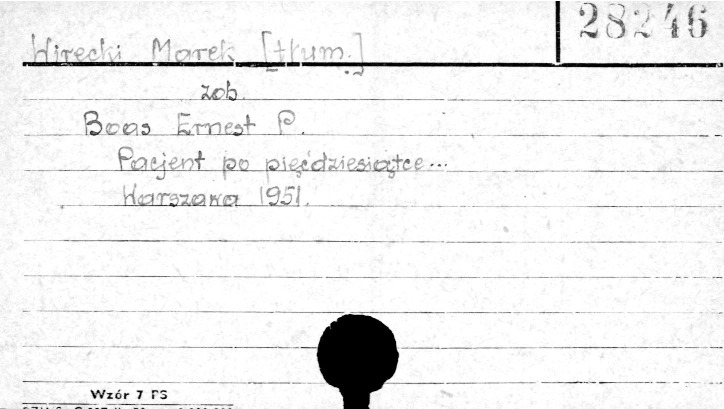 28246
Wirecki Marek [tłum.]
zob.
Boas Ernest P.
Pacjent po pięćdziesiątce...
Warszawa 1951.
Wzór 7 PS